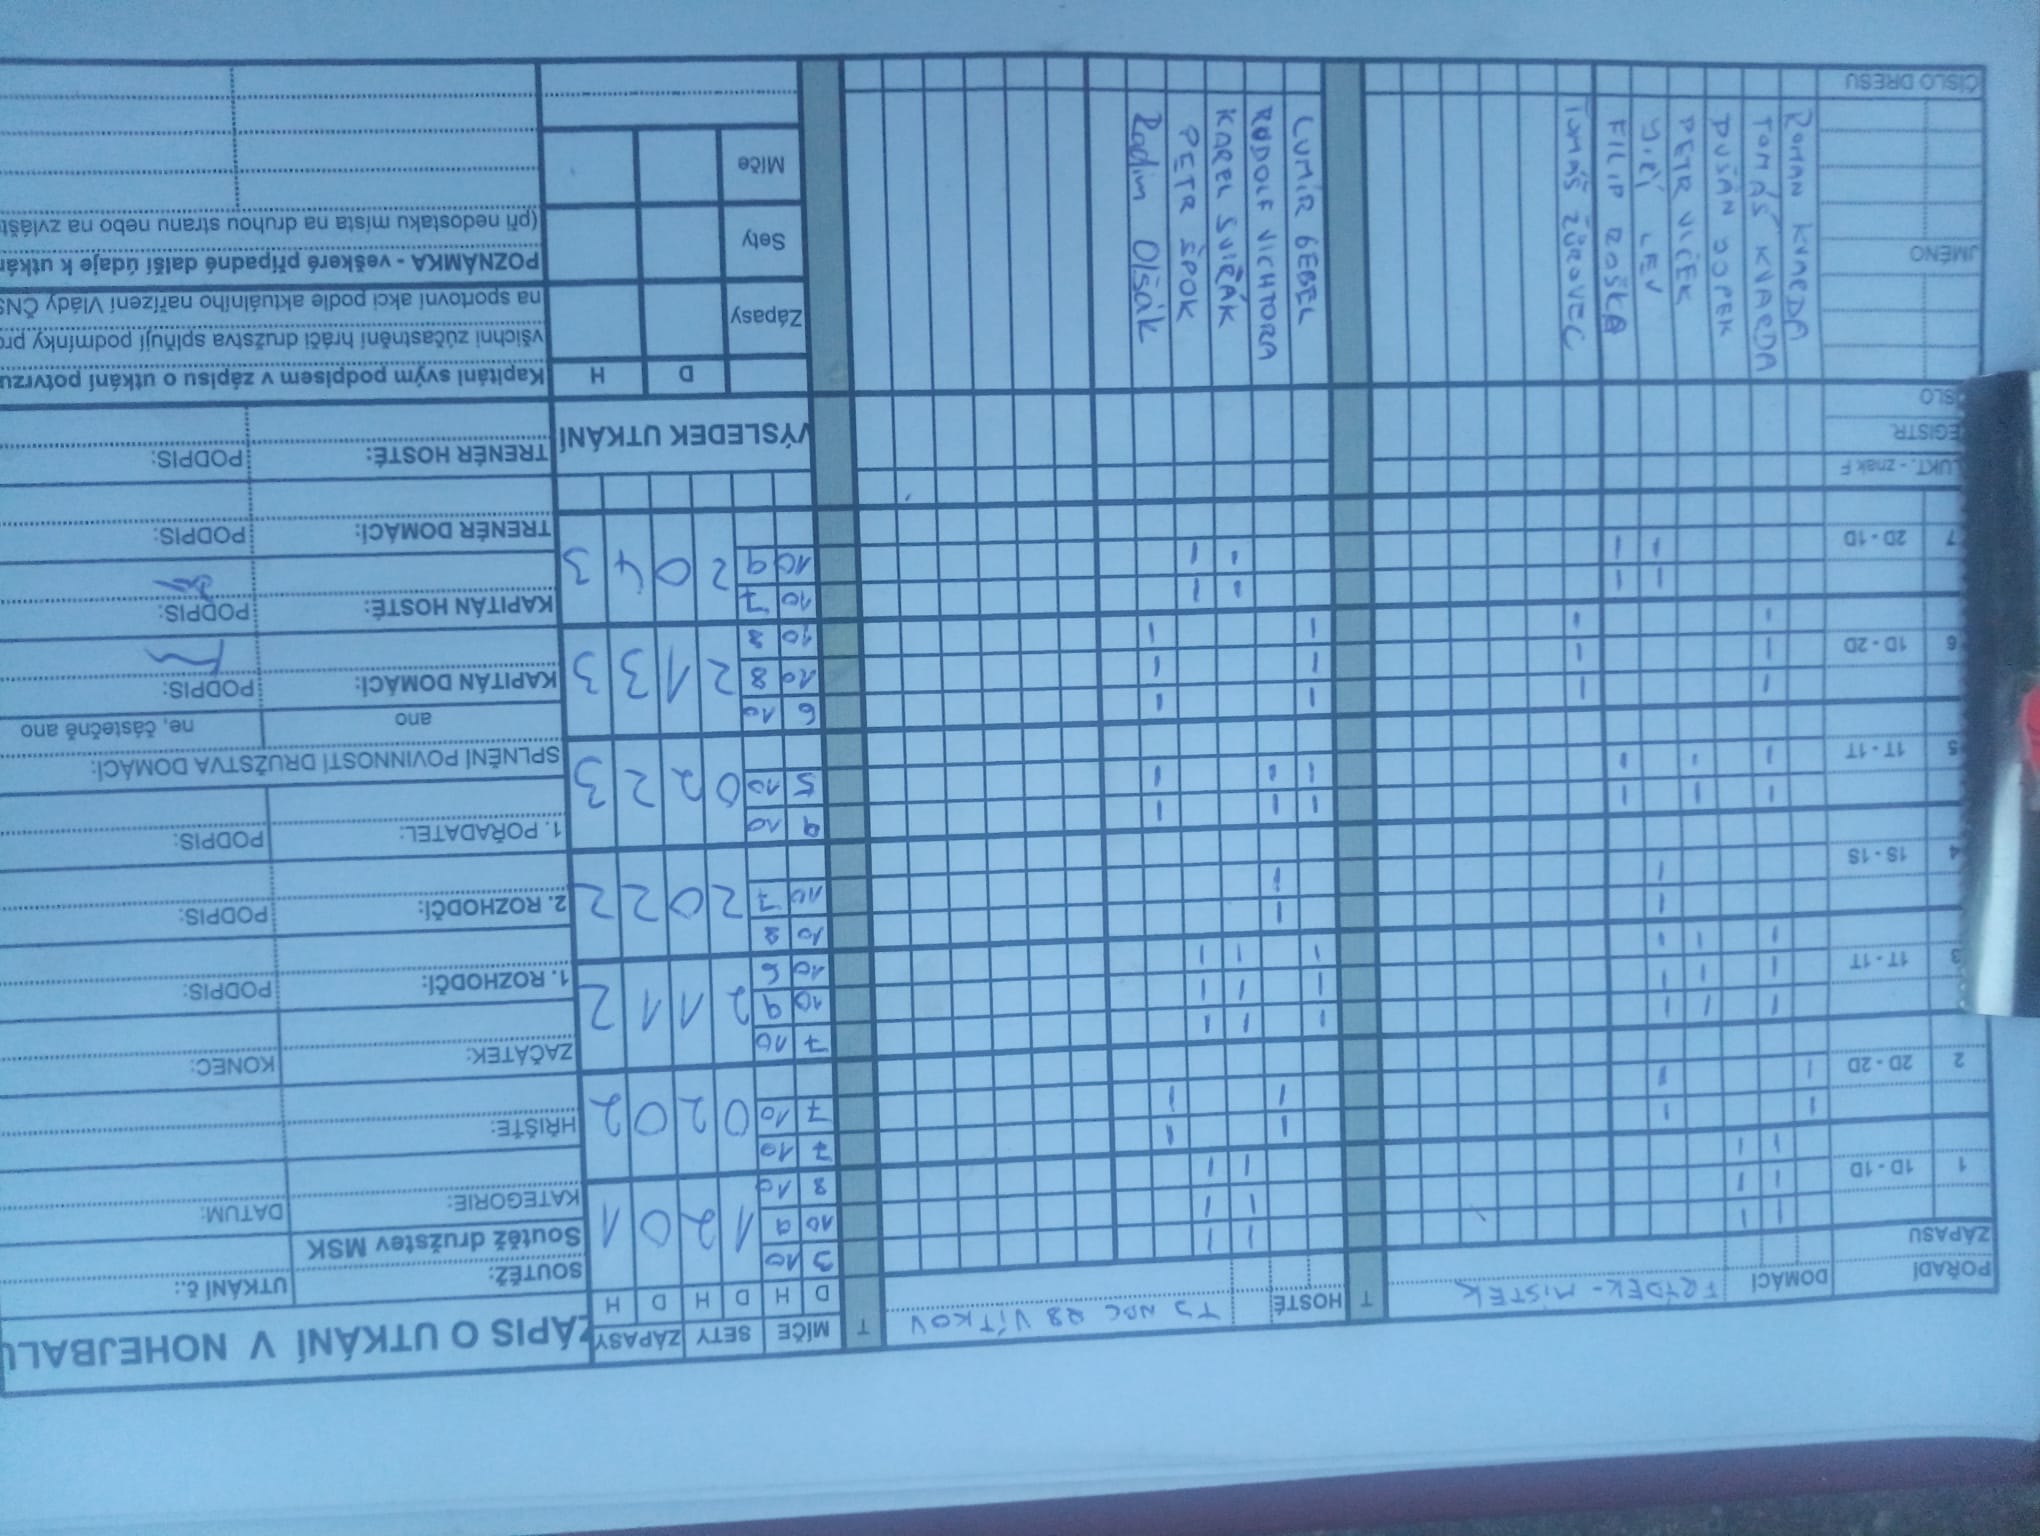 ZÁPIS O UTKÁNÍ V NOHEJBALU
SOUTĚŽ: UTKÁNÍ č.:
Soutěž družstev MSK
KATEGORIE: DATUM:
HŘIŠTĚ:
ZAČÁTEK: KONEC:
1. ROZHODČÍ: PODPIS:
2. ROZHODČÍ: PODPIS:
1. POŘADATEL: PODPIS:
SPLNĚNÍ POVINNOSTÍ DRUŽSTVA DOMÁCÍ:
ano ne, částečně ano
KAPITÁN DOMÁCÍ: PODPIS:
KAPITÁN HOSTÉ: PODPIS:
TRENÉR DOMÁCÍ: PODPIS:
TRENÉR HOSTÉ: PODPIS:
Kapitáni svým podpisem v zápisu o utkání potvrzu
všichni zúčastnění hráči družstva splňují podmínky pro
na sportovní akci podle aktuálního nařízení Vlády ČNS
POZNÁMKA - veškeré případné další údaje k utkán
(při nedostatku místa na druhou stranu nebo na zvlášt
MÍČE SETY ZÁPASY
D H D H D H
3 10
10 9
8 10
1 2 0 1
7 10
7 10
0 2 0 2
7 10
10 9
10 6
2 1 1 2
10 8
10 7
2 0 2 2
9 10
5 10
0 2 2 3
6 10
10 8
10 8
2 1 3 3
10 7
10 9
2 0 4 3
VÝSLEDEK UTKÁNÍ
D H
Zápasy
Sety
Míče
T
HOSTÉ
TJ NPC 28 VÍTKOV
LUMÍR GEBEL
RUDOLF VICHTORA
KAREL SVIŘÁK
PETR ŠPOK
Radim Olšák
T
DOMÁCÍ
FRÝDEK-MÍSTEK
ROMAN KVARDA
TOMÁŠ KVARDA
DUŠAN DOPEK
PETR VLČEK
JIŘÍ LEV
FILIP ROŠKA
TOMÁŠ ŽŮROVEC
POŘADÍ
ZÁPASU
1 1D - 1D
2 2D - 2D
3 1T - 1T
4 1S - 1S
5 1T - 1T
6 1D - 2D
7 2D - 1D
LUKT. - znak F
EGISTR.
ÍSLO
JMÉNO
ČÍSLO DRESU